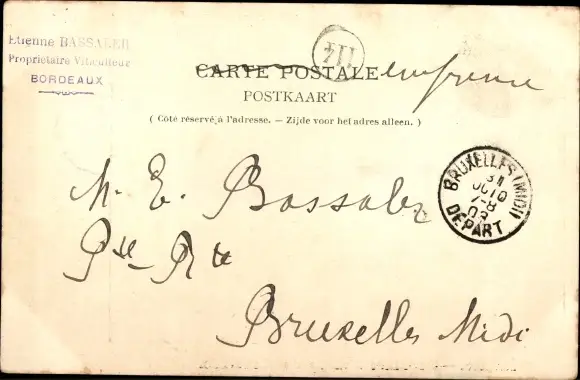 Etienne BASSALER
Propriétaire Viticulteur
BORDEAUX
114
CARTE POSTALE
POSTKAART
( Côté réservé à l'adresse. — Zijde voor het adres alleen. )
M. E. Bassaler
Pte Rte
Bruxelles Midi
BRUXELLES (MIDI)
31
OCTO
7-8
03
DEPART